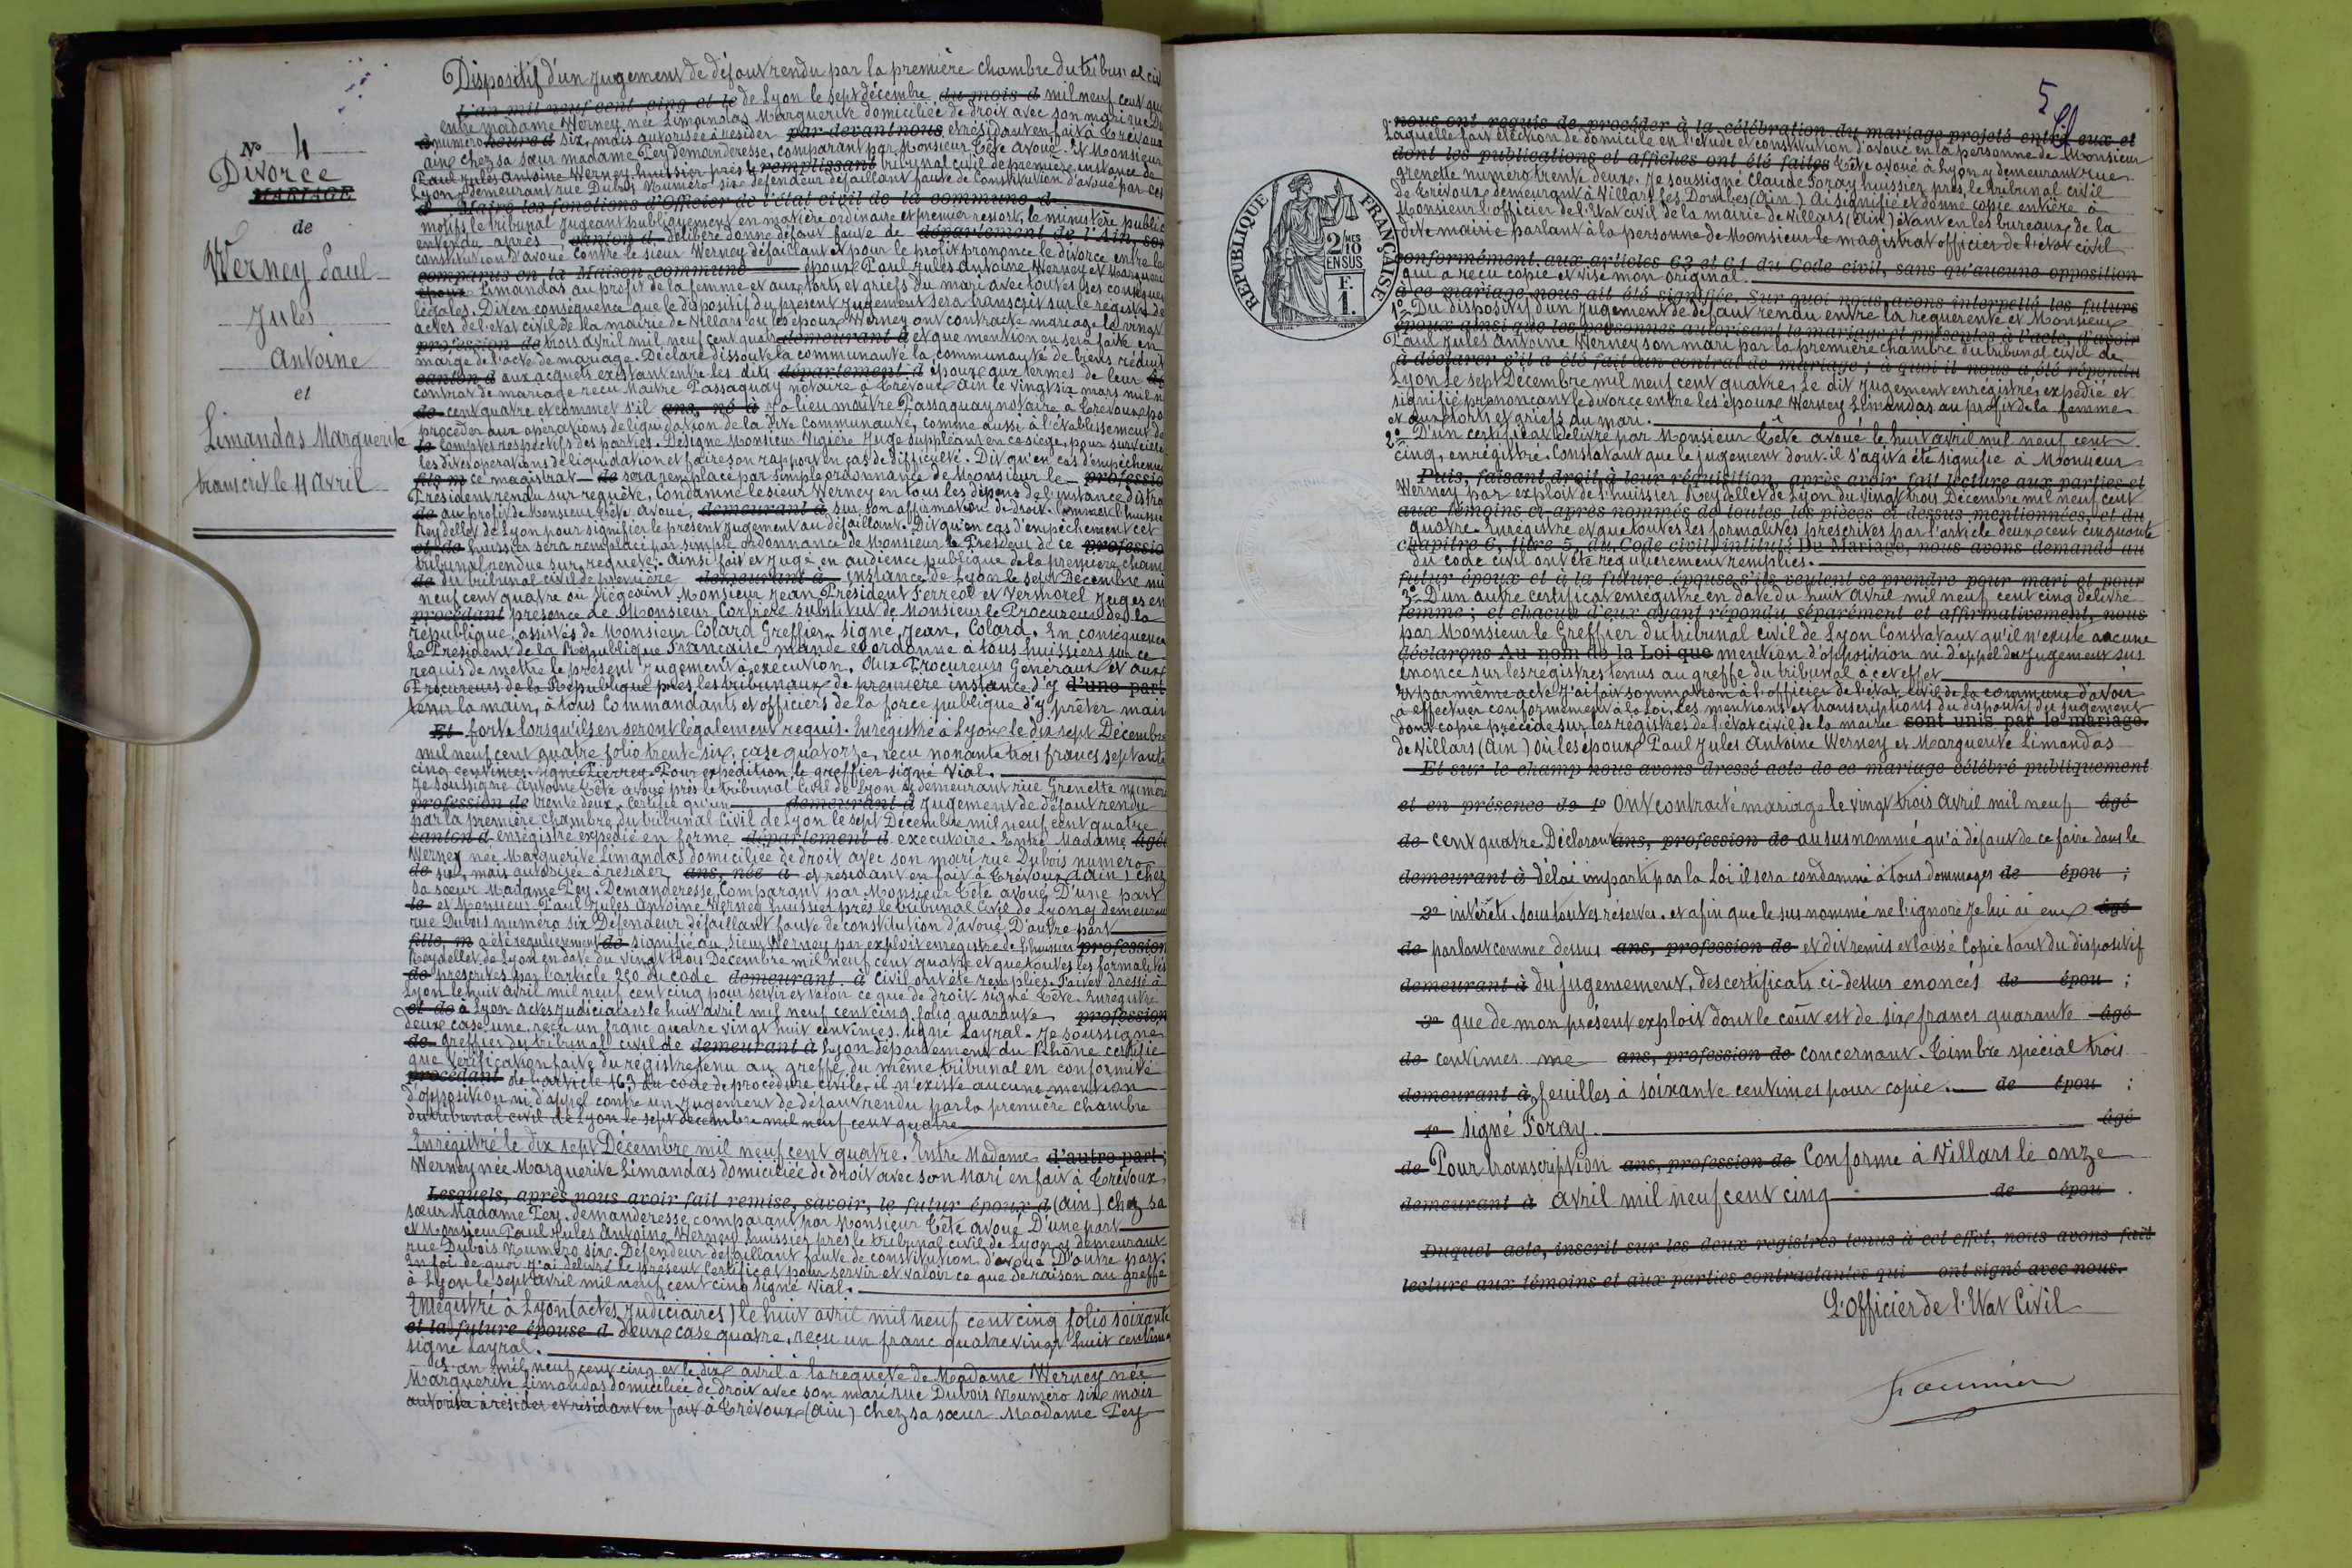 Nº 4
Divorce
MARIAGE
de
Werney Paul
Jules
Antoine
et
Limandas Marguerite
transcrit le 11 avril
Dispositif d'un jugement de défaut rendu par la première chambre du tribunal civ
L'an mil neuf cent cinq et le de Lyon le sept décembre du mois d mil neuf cent qua
entre madame Werney née Limandas Marguerite domiciliée de droit avec son mari rue Du
à numéro heure d six, mais autorisée à résider par devant nous et résidant en fait à Trévoux
ain chez sa sœur madame Pey demanderesse, comparant par Monsieur Tête avoué. Et Monsieur
Paul Jules Antoine Werney huissier près le remplissant tribunal civil de première instance de
Lyon y demeurant rue Dubois numéro six défendeur défaillant faute de constitution d'avoué par ces
d Maire les fonctions d'Officier de l'état civil de la commune d
motifs le tribunal jugeant publiquement en matière ordinaire et premier ressort, le ministère public
entendu après canton d délibéré donne défaut faute de département de l'Ain, son
constitution d'avoué contre le sieur Werney défaillant et pour le profit prononce le divorce entre les
comparus en la Maison commune époux Paul Jules Antoine Werney et Marguerite
époux Limandas au profit de la femme et aux torts et griefs du mari avec toutes ses conséquen
légales. Dit en conséquence que le dispositif du présent jugement sera transcrit sur le registre de
actes de l'état civil de la mairie de Villars ou les époux Werney ont contracté mariage le vingt
profession de trois avril mil neuf cent quatre demeurant à et que mention en sera faite en
marge de l'acte de mariage. Déclare dissoute la communauté la communauté de biens réduit
canton d aux acquets existant entre les dits département d époux aux termes de leur
contrat de mariage recu Maitre Passaquay notaire à Trévoux Ain le vingt six mars mil n
de cent quatre et commet s'il ans, né à y a lieu maitre Passaquay notaire à Trévoux po
procéder aux opérations de liquidation de la dite communauté, comme aussi à l'établissement de
le comptes respectifs des parties. Désigne Monsieur Vigière juge suppléant en ce siège, pour surveiller
les dites opérations de liquidation et faire son rapport en cas de difficulté. Dit qu'en cas d'empêchement
fils m ce magistrat de sera remplacé par simple ordonnance de Monsieur le professio
Président rendu sur requête, Condamne le sieur Werney en tous les dépens de l'instance distra
de au profit de Monsieur Tête avoué, demeurant à sur son affirmation de droit. Commet l'huissi
Reydellet de Lyon pour signifier le présent jugement au défaillant. Dit qu'en cas d'empêchement cet
et de huissier sera remplacé par simple ordonnance de Monsieur le Président de ce professio
tribunal rendue sur requête. Ainsi fait et jugé en audience publique de la première cham
de du tribunal civil de première demeurant à instance de Lyon le sept Décembre mil
neuf cent quatre ou siégeaient Monsieur Jean Président Ferréol et Vermorel juges en
procédant présence de Monsieur Corbière substitut de Monsieur le Procureur de la
république, assistés de Monsieur Colard Greffier. Signé, Jean, Colard. En conséquence
Le Président de la République Française mande et ordonne à tous huissiers sur ce
requis de mettre le présent jugement à exécution. Aux Procureurs Généraux et aux
Procureurs de la République près les tribunaux de première instance d'y d'une part
tenir la main, à tous Commandants et officiers de la force publique d'y prêter main
Et forte lorsqu'ils en seront légalement requis. Enregistré à Lyon le dix sept Décembre
mil neuf cent quatre folio trente six, case quatorze, reçu nonante trois francs septante
cinq centimes. signé Pierrey. Pour expédition le greffier signé Vial.
Je soussigné Antoine Tête avoué près le tribunal civil de Lyon y demeurant rue Grenette numéro
profession de trente deux. Certifie qu'un demeurant à jugement de défaut rendu
par la première chambre du tribunal Civil de Lyon le sept Décembre mil neuf cent quatre
canton d enrégistré expédié en forme département d executoire. Entre Madame âgée
Werney née Marguerite Limandas domiciliée de droit avec son mari rue Dubois numéro
de six, mais autorisée à résider ans, née à et résidant en fait à Trévoux (Ain) chez
sa sœur Madame Pey. Demanderesse, Comparant par Monsieur Tête avoué D'une part
le et Monsieur Paul Jules Antoine Werney huissier près le tribunal Civil de Lyon y demeurant
rue Dubois numéro six Défendeur défaillant faute de constitution d'avoué D'autre part
fille, m a été régulièrement de signifié au sieur Werney par exploit enregistré de l'huissier profession
Reydellet de Lyon en date du vingt trois Décembre mil neuf cent quatre et que toutes les formalités
de prescrites par l'article 250 du code demeurant à Civil ont été remplies. Fait et dressé à
Lyon le huit avril mil neuf cent cinq pour servir et valoir ce que de droit. signé Tête. Enregistré
et de à Lyon actes judiciaires le huit avril mil neuf cent cinq folio quarante profession
deux case une, reçu un franc quatre vingt huit centimes. signé Layral. Je soussigné
de greffier du tribunal civil de demeurant à Lyon département du Rhône certifie
que vérification faite du régistre tenu au greffe du même tribunal en conformité
procédant de l'article 163 du code de procédure civile, il n'existe aucune mention
d'opposition ni d'appel contre un jugement de défaut rendu par la première chambre
du tribunal civil de Lyon le sept décembre mil neuf cent quatre
Enregistré le dix sept Décembre mil neuf cent quatre. Entre Madame d'autre part;
Werney née Marguerite Limandas domiciliée de droit avec son Mari en fait à Trévoux
Lesquels, après nous avoir fait remise, savoir, le futur époux d (Ain) chez sa
sœur Madame Pey. demanderesse comparant par Monsieur Tête avoué D'une part
et Monsieur Paul Jules Antoine Werney huissier près le tribunal civil de Lyon y demeurant
rue Dubois numéro six. Défendeur défaillant faute de constitution d'avoué D'autre part.
En foi de quoi j'ai délivré le présent Certificat pour servir et valoir ce que de raison au greffe
à Lyon le sept avril mil neuf cent cinq signé Vial.
Enregistré à Lyon (actes judiciaires) le huit avril mil neuf cent cinq folio soixante
et la future épouse d deux case quatre, reçu un franc quatre vingt huit centimes
signé Layral.
L'an mil neuf cent cinq et le dix avril à la requête de Madame Werney née
Marguerite Limandas domiciliée de droit avec son mari rue Dubois numéro six mais
autorisée à résider et résidant en fait à Trévoux (Ain) chez sa sœur Madame Pey
5
RÉPUBLIQUE FRANÇAISE
2/10 MES EN SUS
F. 1.
nous ont requis de procéder à la célébration du mariage projeté entre eux et
Laquelle fait élection de domicile en l'étude et constitution d'avoué en la personne de Monsieur
dont les publications et affiches ont été faites Tête avoué à Lyon y demeurant rue
grenette numéro trente deux. Je soussigné Claude Foray huissier près le tribunal civil
de Trévoux demeurant à Villars les Dombes (Ain) Ai signifié et donné copie entière à
Monsieur l'officier de l'Etat civil de la mairie de Villars (Ain) étant en les bureaux de la
dite mairie parlant à la personne de Monsieur le magistrat officier de l'état civil
conformément aux articles 63 et 61 du Code civil, sans qu'aucune opposition
qui a reçu copie et visé mon original.
à ce mariage nous ait été signifiée. Sur quoi nous avons interpellé les futurs
1º Du dispositif d'un jugement de défaut rendu entre la requérente et Monsieur
époux ainsi que les personnes autorisant le mariage et présentes à l'acte, d'avoir
Paul Jules Antoine Werney son mari par la première chambre du tribunal civil de
à déclarer s'il a été fait un contrat de mariage; à quoi il nous a été répondu
Lyon le sept Décembre mil neuf cent quatre, Le dit jugement enrégistré, expédié et
signifié prononçant le divorce entre les époux Werney Limandas au profit de la femme
et aux torts et griefs du mari.
2º D'un certificat délivré par Monsieur Tête avoué le huit avril mil neuf cent
cinq, enrégistré. Constatant que le jugement dont il s'agit a été signifié à Monsieur
Puis, faisant droit à leur réquisition, après avoir fait lecture aux parties et
Werney par exploit de l'huissier Reydellet de Lyon du vingt trois Décembre mil neuf cent
aux témoins ci-après nommés de toutes les pièces ci-dessus mentionnées, et du
quatre. Enregistré et que toutes les formalités prescrites par l'article deux cent cinquante
chapitre 6, titre 5, du Code civil, intitulé Du Mariage, nous avons demandé au
du code civil ont été régulièrement remplies.
futur époux et à la future épouse s'ils veulent se prendre pour mari et pour
3º D'un autre certificat enregistré en date du huit avril mil neuf cent cinq délivré
femme; et chacun d'eux ayant répondu séparément et affirmativement, nous
par Monsieur le Greffier du tribunal civil de Lyon Constatant qu'il n'existe aucune
déclarons Au nom de la Loi que mention d'opposition ni d'appel du jugement sus
énoncé sur les registres tenus au greffe du tribunal à cet effet
Et par même acte j'ai fait sommation à l'officier de l'état civil de la commune d'avoir
à effectuer conformément à la loi, Les mentions et transcriptions du dispositif du jugement
dont copie précède sur les régistres de l'état civil de la mairie sont unis par le mariage.
de Villars (Ain) où les époux Paul Jules Antoine Werney et Marguerite Limandas
Et sur le champ nous avons dressé acte de ce mariage célébré publiquement
et en présence de 1º Ont contracté mariage le vingt trois avril mil neuf âgé
de cent quatre. Déclarant ans, profession de au susnommé qu'à défaut de ce faire dans le
demeurant à délai imparti par la Loi il sera condamné à tous dommages de épou ;
2º intérêts. sous toutes réserves. et afin que le sus nommé ne l'ignore je lui ai eux âgé
de parlant comme dessus ans, profession de et dit remis et laissé Copie tant du dispositif
demeurant à du jugemement, des certificats ci-dessus énoncés de épou ;
3º que de mon présent exploit dont le coût est de six francs quarante âgé
de centimes me ans, profession de concernant. Timbre spécial trois
demeurant à feuilles à soixante centimes pour copie. de épou ;
4º signé Foray. âgé
de Pour transcription ans, profession de Conforme à Villars le onze
demeurant à avril mil neuf cent cinq de épou .
Duquel acte, inscrit sur les deux registres tenus à cet effet, nous avons fait
lecture aux témoins et aux parties contractantes qui ont signé avec nous.
L'officier de l'Etat Civil